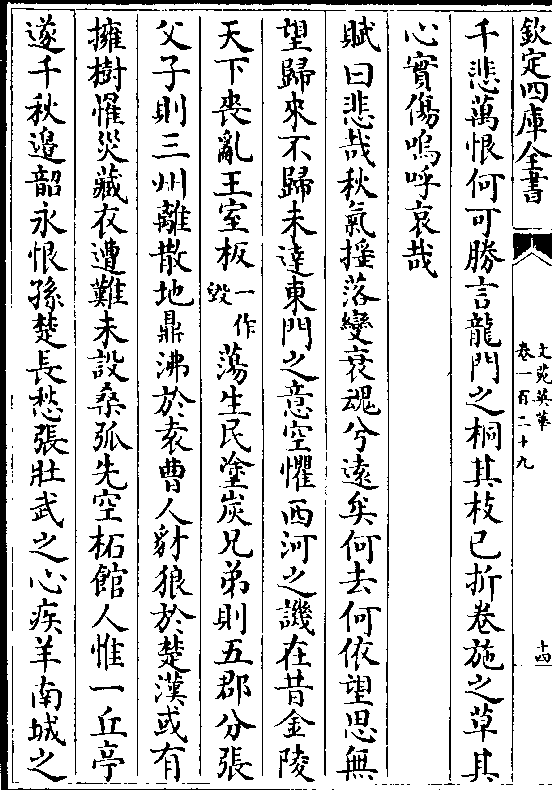 欽定四庫全書
文苑英華
卷一百二十九
十四
千悲萬恨何可勝言龍門之桐其枝已折卷施之草其
心實傷嗚呼哀哉
賦曰悲哉秋氣揺落變衰魂兮逺矣何去何依望思無
望歸來不歸未達東門之意空懼西河之譏在昔金陵
天下喪亂王室板一作毁蕩生民塗炭兄弟則五郡分張
父子則三州離散地鼎沸於袁曹人豺狼於楚漢或有
擁樹懼災藏衣遭難未設桑弧先空柘館人惟一丘亭
遂千秋邉韶永恨孫楚長愁張壯武之心疾羊南城之